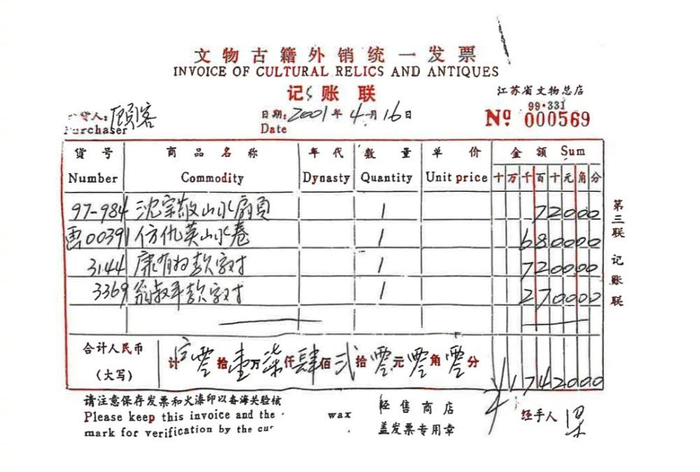 文物古籍外销统一发票
INVOICE OF CULTURAL RELICS AND ANTIQUES
记 账 联
江苏省文物总店
货人: 顾客
Purchaser
日期: 2001年 4月16日
Date
99·331
Nº 000569
货号 商品名称 年代 数量 单价 金额 Sum
Number Commodity Dynasty Quantity Unit price 十万千百十元角分
97-984 沈宗敬山水扇页 1 72000
00391 仿仇英山水卷 1 680000
3144 康有为款字对 1 720000
3369 翁叔平款字对 1 270000
合计人民币
(大写)
计 零拾壹万柒仟肆佰弍拾零元零角零分 ¥1742000
第三联 记账联
请注意保存发票和火漆印以备海关验核
Please keep this invoice and the wax
mark for verification by the
经售商店
盖发票专用章
经手人 梁